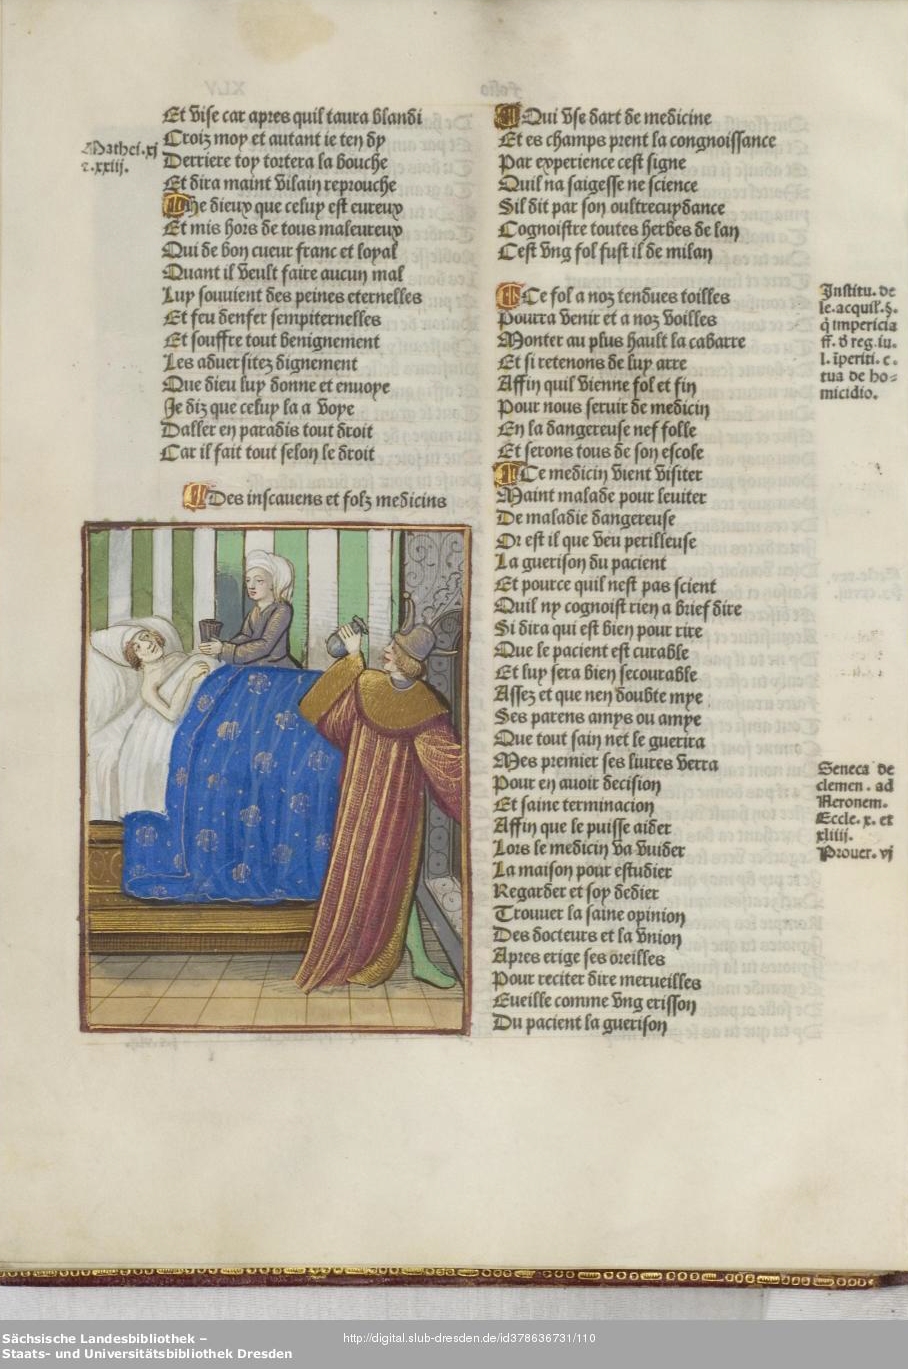 Et vise car apres quil taura blandi
Croiz moy et autant ie ten dy
Derriere toy tortera la bouche
Et dira maint vilain reprouche
He dieux que celuy est eureux
Et mis hors de tous maleureux
Qui de bon cueur franc et loyal
Quant il veult faire aucun mal
Luy souuient des peines eternelles
Et feu denfer sempiternelles
Et souffre tout benignement
Les aduersitez dignement
Que dieu luy donne et enuoye
Je diz que celuy la a voye
Daller en paradis tout droit
Car il fait tout selon le droit
Mathei.xj
⁊.xxiij.
Des inscauens et folz medicins
Qui vse dart de medicine
Et es champs prent la congnoissance
Par experience cest signe
Quil na saigesse ne science
Sil dit par son oultrecuydance
Cognoistre toutes herbes de lan
Cest vng fol fust il de milan
Ce fol a noz tendues toilles
Pourra venir et a noz voilles
Monter au plus hault la cabarre
Et si retenons de luy arre
Affin quil vienne fol et fin
Pour nous seruir de medicin
En la dangereuse nef folle
Et serons tous de son escole
Ce medicin vient visiter
Maint malade pour leuiter
De maladie dangereuse
Or est il que veu perilleuse
La guerison du pacient
Et pource quil nest pas scient
Quil ny cognoist rien a brief dire
Si dira qui est bien pour rire
Que le pacient est curable
Et luy sera bien secourable
Assez et que nen doubte mye
Ses parens amys ou amye
Que tout sain net le guerira
Mes premier ses liures verra
Pour en auoir decision
Et saine terminacion
Affin que le puisse aider
Lors le medicin va vuider
La maison pour estudier
Regarder et soy dedier
Trouuer la saine opinion
Des docteurs et la vnion
Apres erige ses oreilles
Pour reciter dire merueilles
Eueille comme vng erisson
Du pacient la guerison
Institu. de
le.acquil.§.
q̇ impericia
ff. ď reg.iu.
l. īperiti. c.
tua de ho⸗
micidio.
Seneca de
clemen. ad
Neronem.
Eccle. x. et
xliiij.
Prouer. vj
Sächsische Landesbibliothek –
Staats- und Universitätsbibliothek Dresden
http://digital.slub-dresden.de/id378636731/110